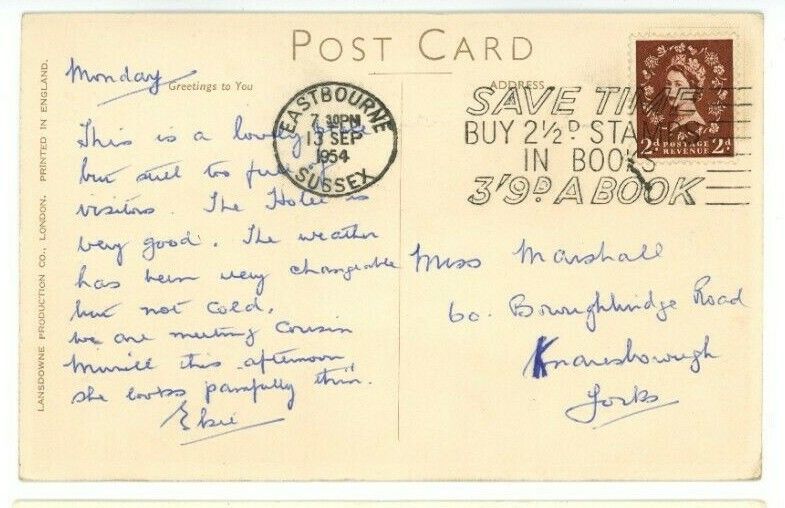 POST CARD
Greetings to You
ADDRESS
LANSDOWNE PRODUCTION CO., LONDON. PRINTED IN ENGLAND.
EASTBOURNE
7 30PM
13 SEP
1954
SUSSEX
SAVE TIME
BUY 2½D STAMPS
IN BOOKS
3'9D A BOOK
2d POSTAGE REVENUE 2d
Monday
This is a lovely place
but still too full of
visitors. The Hotel is
very good. The weather
has been very changeable
but not cold.
We are meeting Cousin
this afternoon
she looks painfully thin.
Elsie
Miss Marshall
60. Boroughbridge Road
Knaresborough
Yorks